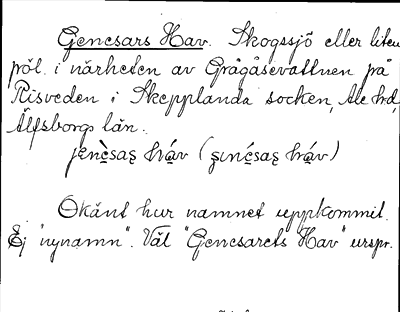 Gencsars Hav. Skogssjö eller liten
pöl i närheten av Grågåsevattnen på
Risveden i Skepplanda socken, Ale hd,
Älfsborgs län.
Okänt hur namnet uppkommit.
Ej "nynamn". Väl "Gencsarets Hav" urspr.